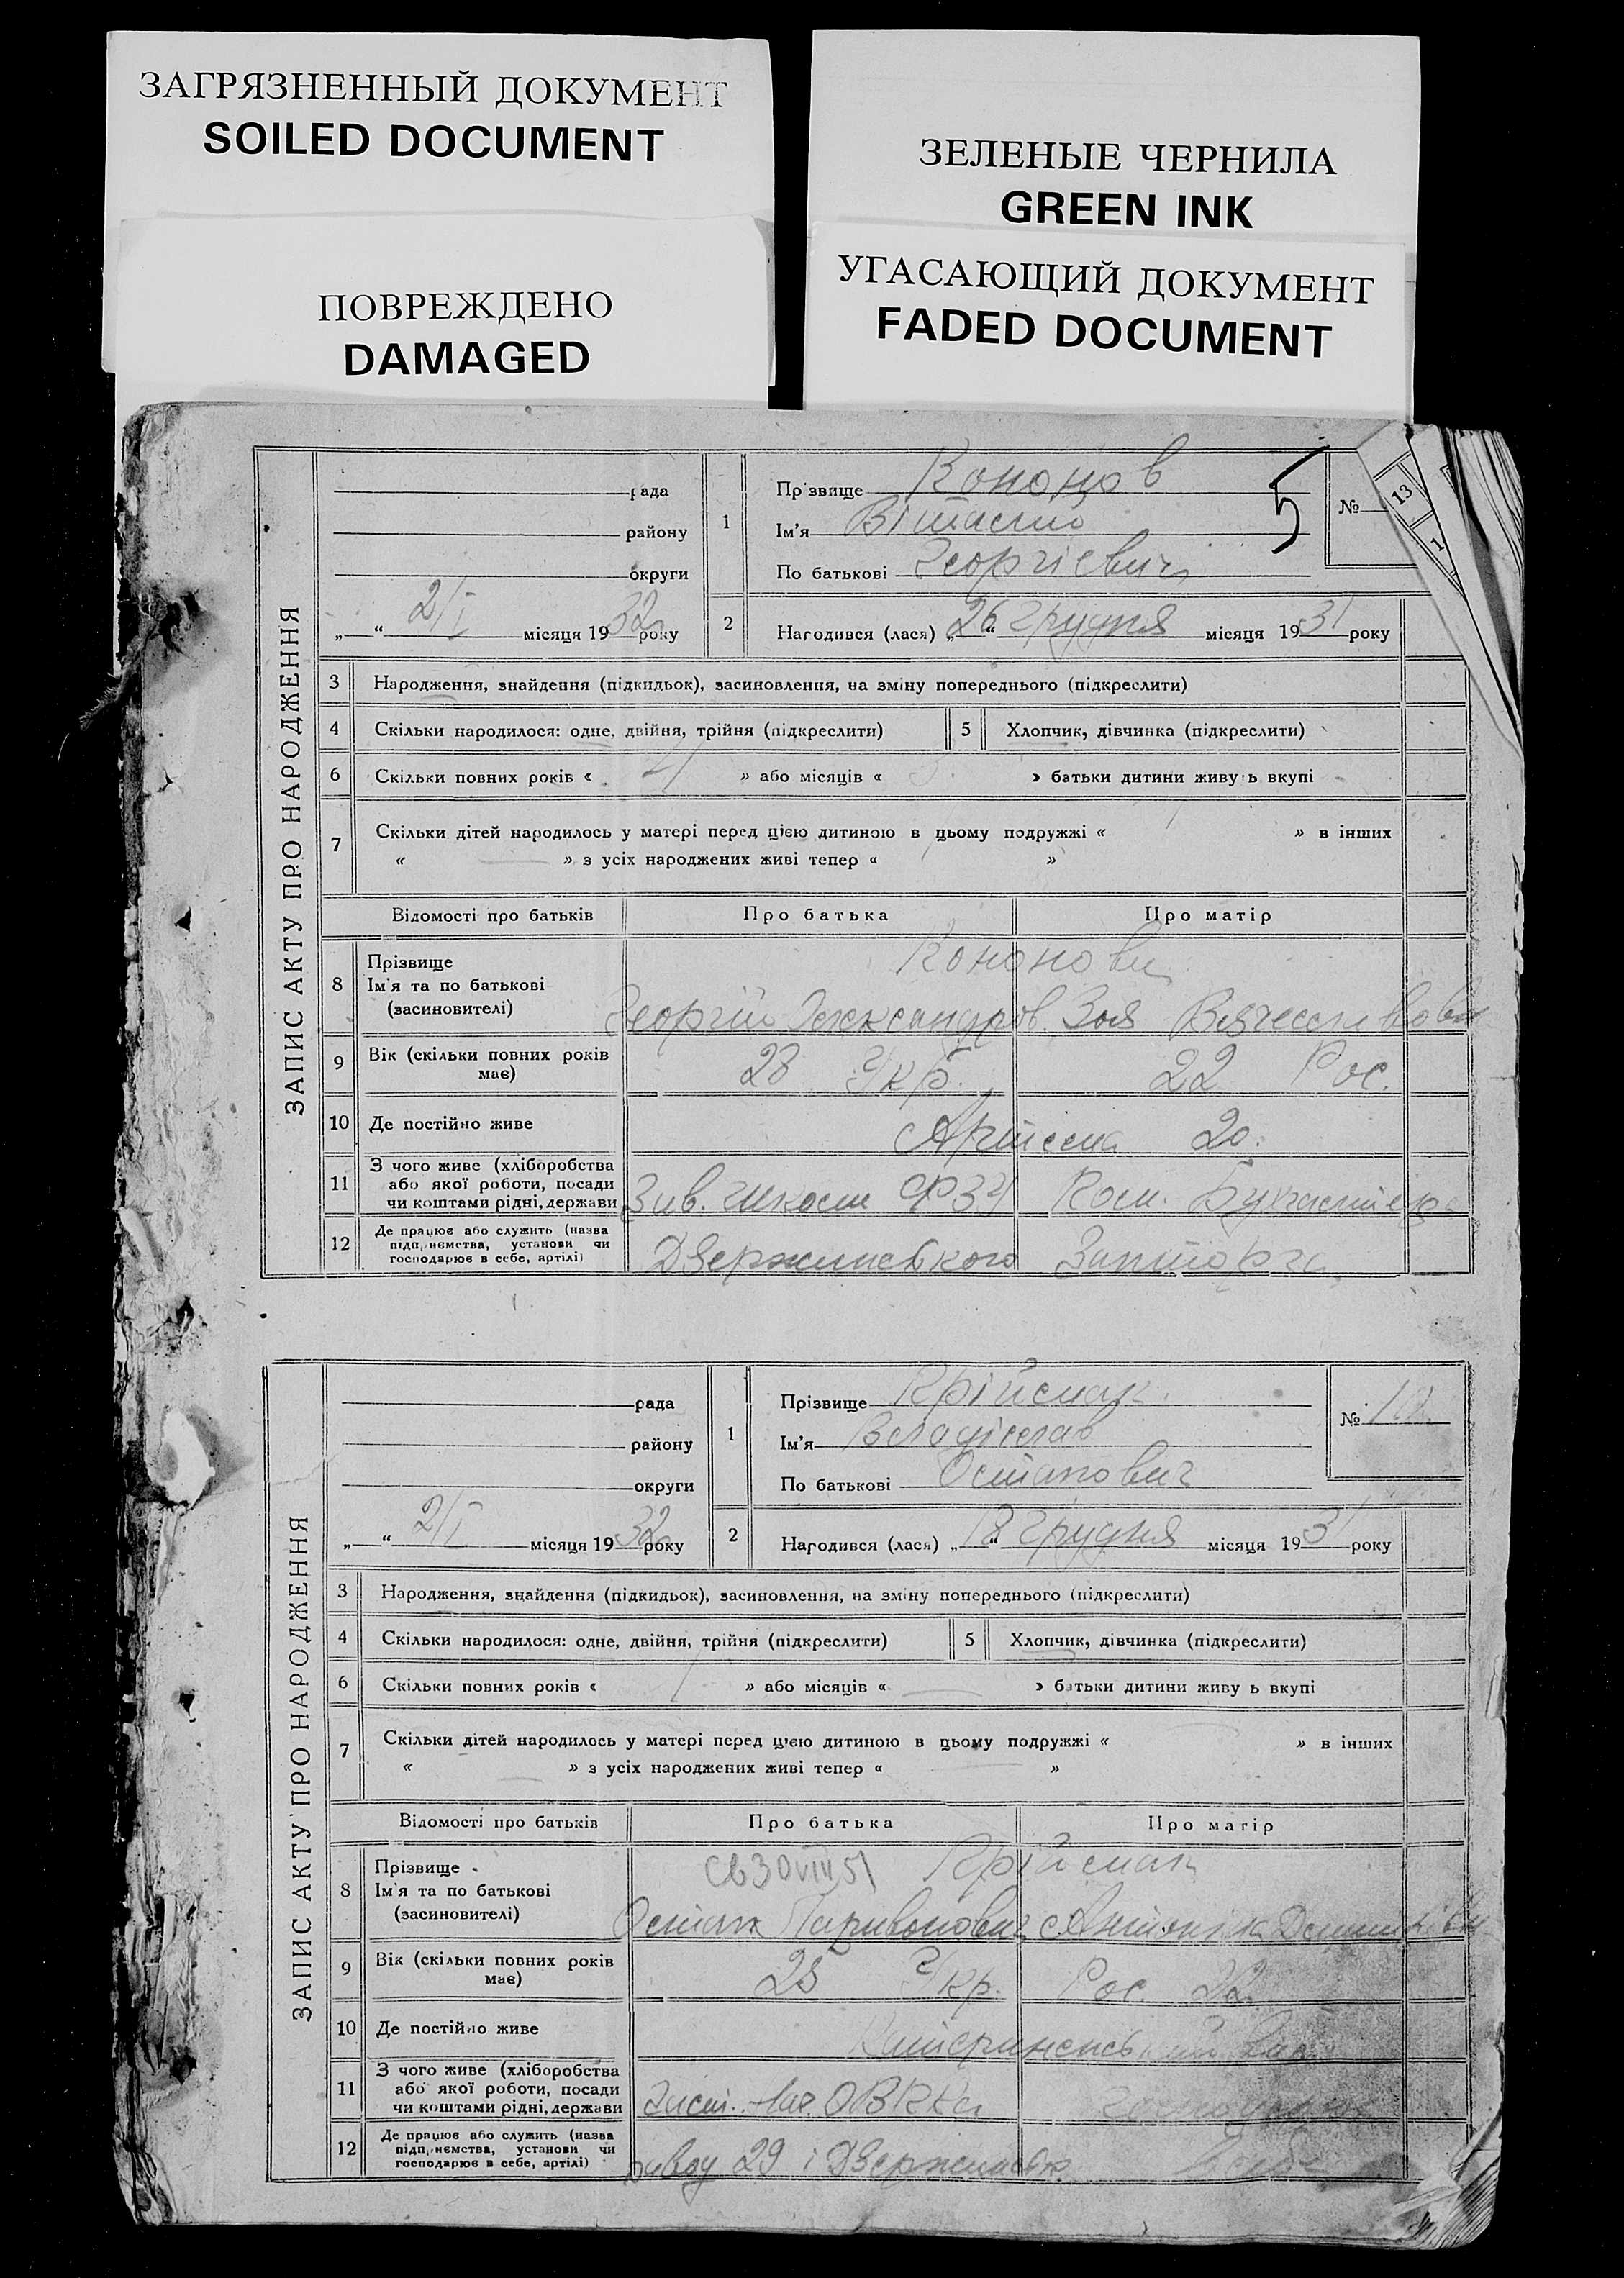 ЗАГРЯЗНЕННЫЙ ДОКУМЕНТ
SOILED DOCUMENT
ПОВРЕЖДЕНО
DAMAGED
ЗЕЛЕНЫЕ ЧЕРНИЛА
GREEN INK
УГАСАЮЩИЙ ДОКУМЕНТ
FADED DOCUMENT
ЗАПИС АКТУ ПРО НАРОДЖЕННЯ
рада
району
округи
„ “ 2/I місяця 1932 року
1 Прізвище Кононов
Ім'я Віталій
По батькові Георгієвич
5
№
13
1
2 Народився (лася) „26“ грудня місяця 1931 року
3 Народження, знайдення (підкидьок), засиновлення, на зміну попереднього (підкреслити)
4 Скільки народилося: одне, двійня, трійня (підкреслити) 5 Хлопчик, дівчинка (підкреслити)
6 Скільки повних років « » або місяців « » батьки дитини живуть вкупі
7 Скільки дітей народилось у матері перед цією дитиною в цьому подружжі « » в інших
« » з усіх народжених живі тепер « »
Відомості про батьків Про батька Про матір
8 Прізвище Кононови
Ім'я та по батькові
(засиновителі) Георгій Олександров. Зоя
9 Вік (скільки повних років має) 28 Укр. 22 Рос.
10 Де постійно живе Артема 20.
11 З чого живе (хліборобства
або якої роботи, посади
чи коштами рідні, держави Зав. школи ФЗУ
12 Де працює або служить (назва
підприємства, установи чи
господарює в себе, артілі) Дзержинського
ЗАПИС АКТУ ПРО НАРОДЖЕННЯ
рада
району
округи
„ “ 2/I місяця 1932 року
1 Прізвище Крійсмак
Ім'я Владіслав
По батькові Остапович
№ 12
2 Народився (лася) „18“ грудня місяця 1931 року
3 Народження, знайдення (підкидьок), засиновлення, на зміну попереднього (підкреслити)
4 Скільки народилося: одне, двійня, трійня (підкреслити) 5 Хлопчик, дівчинка (підкреслити)
6 Скільки повних років « 1 » або місяців « — » батьки дитини живуть вкупі
7 Скільки дітей народилось у матері перед цією дитиною в цьому подружжі « » в інших
« — » з усіх народжених живі тепер « — »
Відомості про батьків Про батька Про матір
8 Прізвище Крійсмак
Ім'я та по батькові
(засиновителі) Остап
9 Вік (скільки повних років має) 28 Укр. Рос. 22
10 Де постійно живе
11 З чого живе (хліборобства
або якої роботи, посади
чи коштами рідні, держави
12 Де працює або служить (назва
підприємства, установи чи
господарює в себе, артілі)